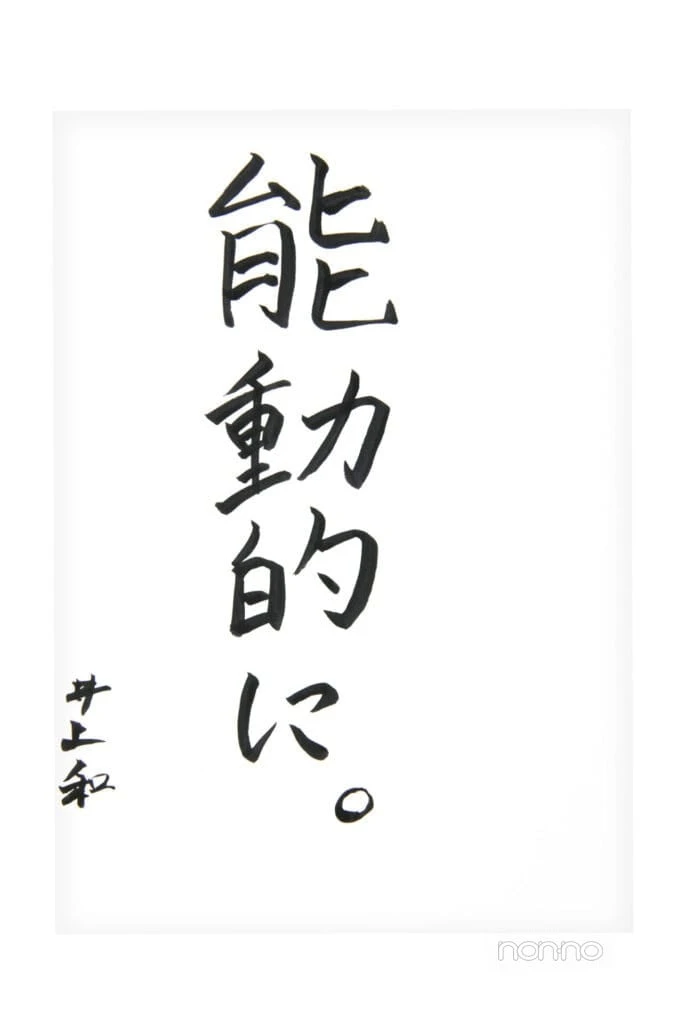 能動的に。
井上和
non-no